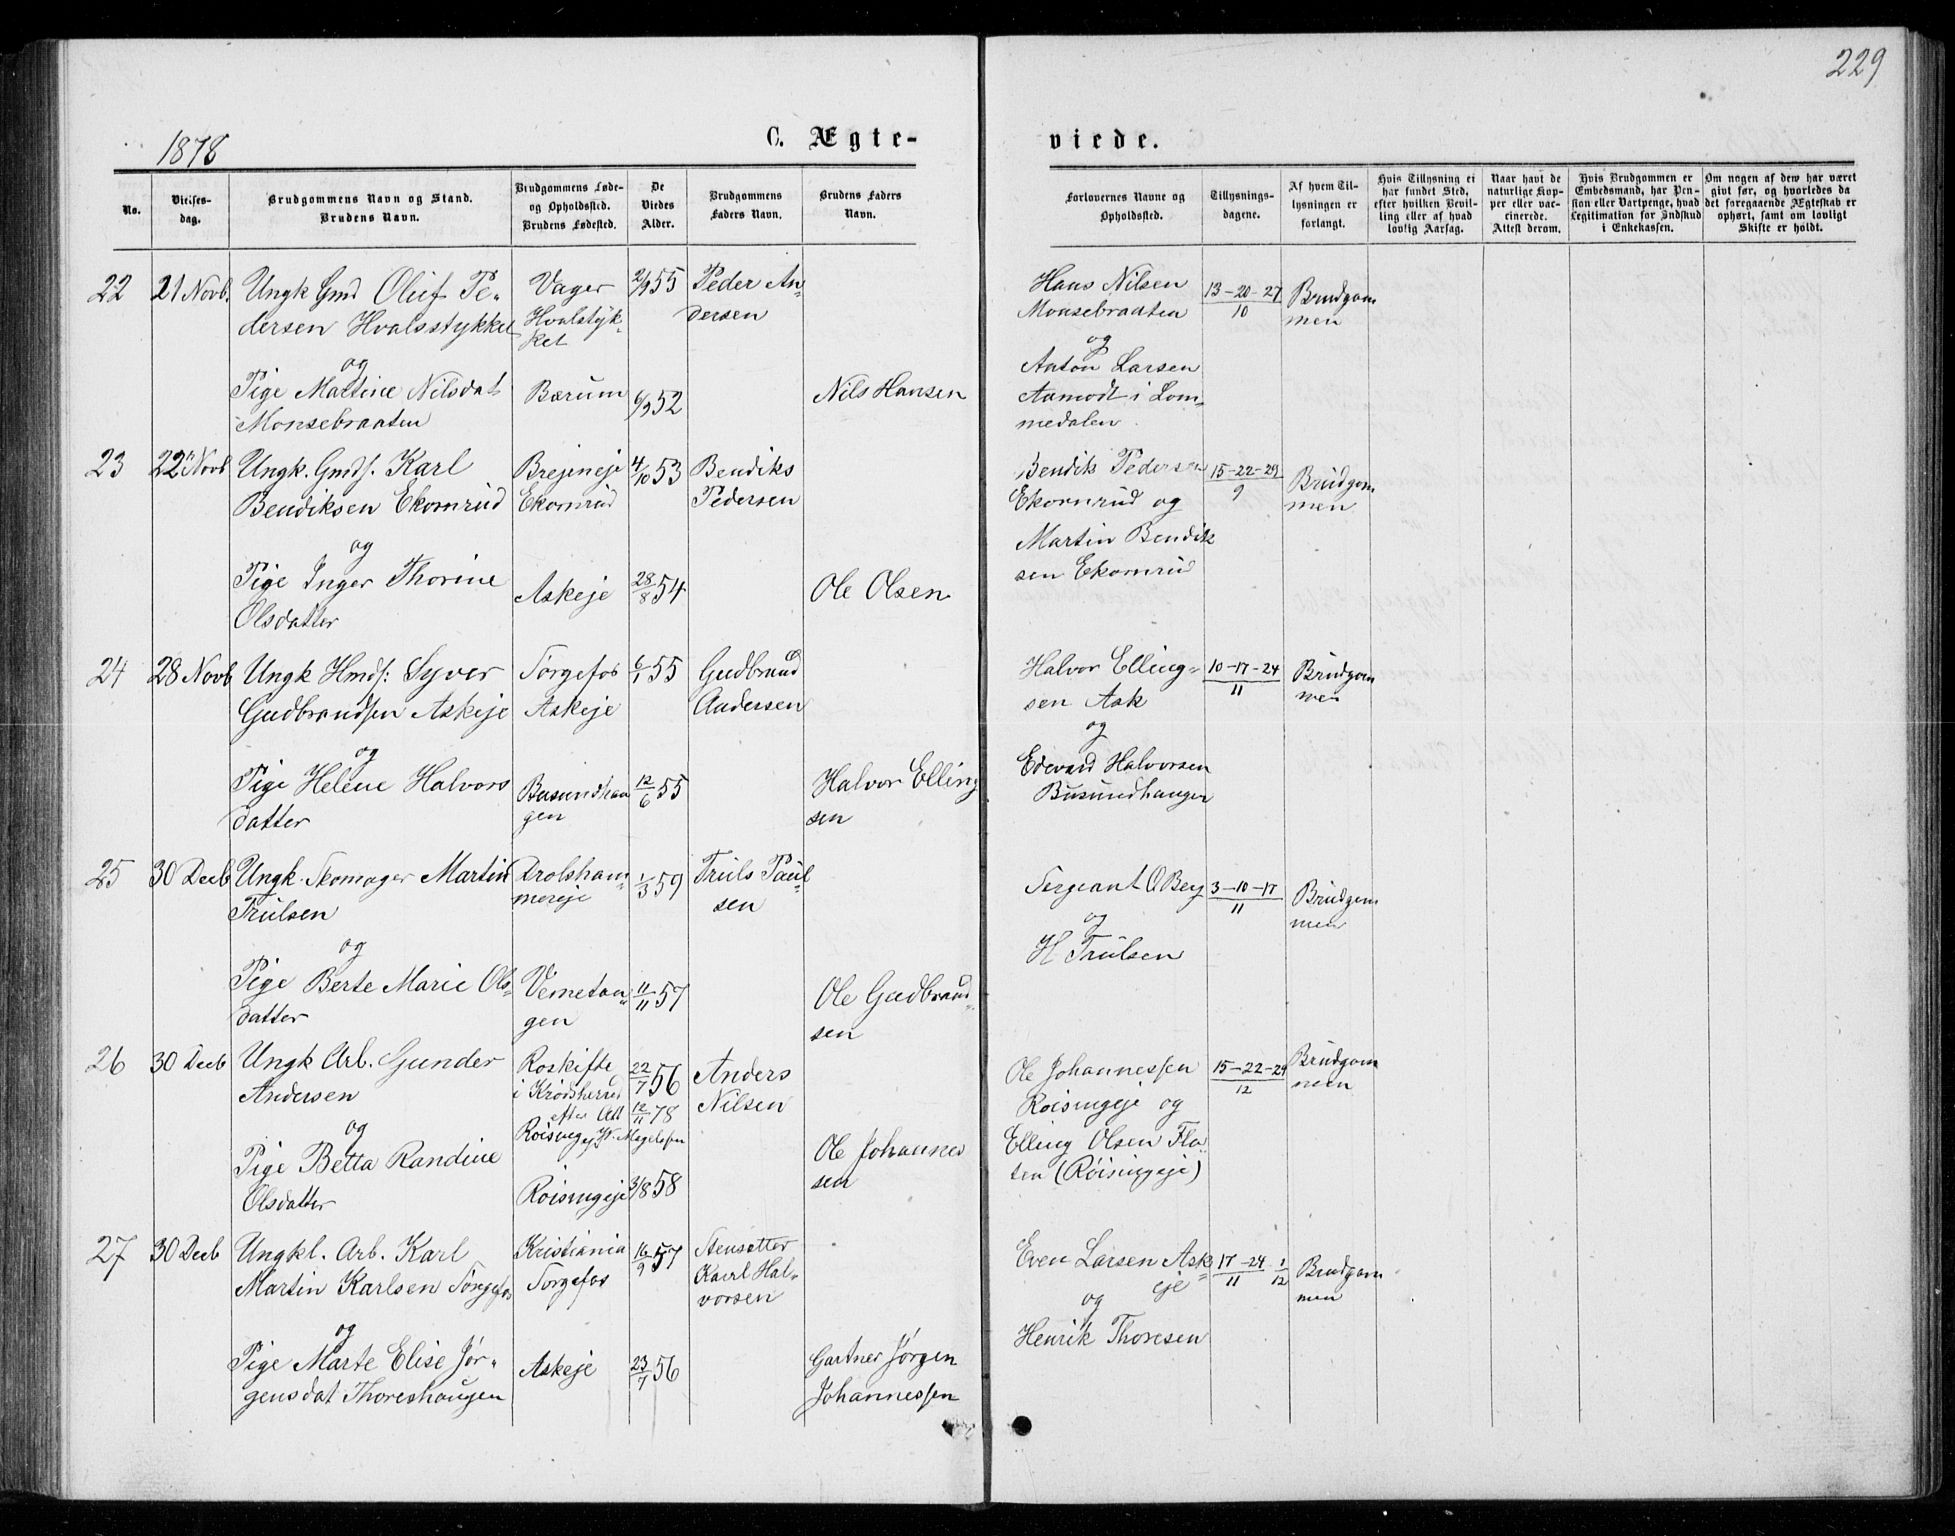 229
1878
C. Ægte-
viede.
No.
Vielses-
dag.
Brudgommens Navn og Stand.
Brudens Navn.
Brudgommens Føde-
og Opholdssted.
Brudens Fødested.
De
Viedes
Alder.
Brudgommens
Faders Navn.
Brudens Faders
Navn.
Forlovernes Navne og
Opholdssted.
Tillysnings-
dagene.
Af hvem Til-
lysningen er
forlangt.
Hvis Tillysning ei
har fundet Sted,
efter hvilken Bevil-
ling eller af hvad
lovlig Aarsag.
Naar havt de
naturlige Kop-
per eller vac-
cinerede.
Attest derom.
Hvis Brudgommen er
Embedsmand, har Pen-
sion eller Vartpenge, hvad
Legitimation for Indskud
i Enkekassen.
Om nogen af dem har været
givt før, og hvorledes da
det foregaaende Ægteskab er
ophørt, samt om lovligt
Skifte er holdt.
22
21 Novb.
Ungk Gmd Oluf Pe-
dersen Hvalsstykket
og
Pige Martine Nilsdat
Monsebraaten
Vager
Hvalstyk-
ket
Bærum
2/9 55
6/9 52
Peder An-
dersen
Nils Hansen
Hans Nilsen
Monsebraaten
og
Anton Larsen
Aamodt i Lom-
medalen
13-20-27
10
Brudgom
men
23
22 Novb
Ungk. Gmds. Karl
Bendiksen Ekornrud
og
Pige Inger Thorine
Olsdatter
Brejeneje
Ekornrud
Askeje
4/10 53
28/8 54
Bendiks
Pedersen
Ole Olsen
Bendik Pedersen
Ekornrud og
Martin Bendik
sen Ekornrud
15-22-29
9
Brudgom
men
24
28 Novb
Ungk Hmds: Syver
Gudbrandsen Askeje
og
Pige Helene Halvors
datter
Torgefos
Askeje
Busundhau
gen
6/1 55
12/6 55
Gudbrand
Andersen
Halvor Elling
sen
Halvor Elling-
sen Ask
og
Edevard Halvorsen
Busundhaugen
10-17-24
11
Brudgom
men
25
30 Decb
Ungk. Skomager Martin
Trulsen
og
Pige Berte Marie Ols-
datter
Drolsham-
mereje
Vemetan-
gen
1/3 59
11/11 57
Truls Paul-
sen
Ole Gudbrand-
sen
Sergeant O Berg
og
H Trulsen
3-10-17
11
Brudgom
men
26
30 Decb
Ungk Arb. Gunder
Andersen
og
Pige Betta Randine
Olsdatter
Roskifte
i Krødsherred
efter Att
Røisingeje
Røisingeje
22/7 56
12/11 78
3/8 58
Anders
Nilsen
Ole Johannes
sen
Ole Johannessen
Røisingeje og
Elling Olsen Fla-
ten (Røisingeje)
15-22-29
12
Brudgom
men
27
30 Decb
Ungkl. Arb. Karl
Martin Karlsen Torgefos
og
Pige Marte Elise Jør-
gensdat Thoreshaugen
Kristiania
Torgefos
Askeje
16/9 57
23/7 56
Stensetter
Karl Hal-
vorsen
Gartner Jørgen
Johannessen
Even Larsen Ask-
eje
og
Henrik Thoresen
17-24 1
11 12
Brudgom
men